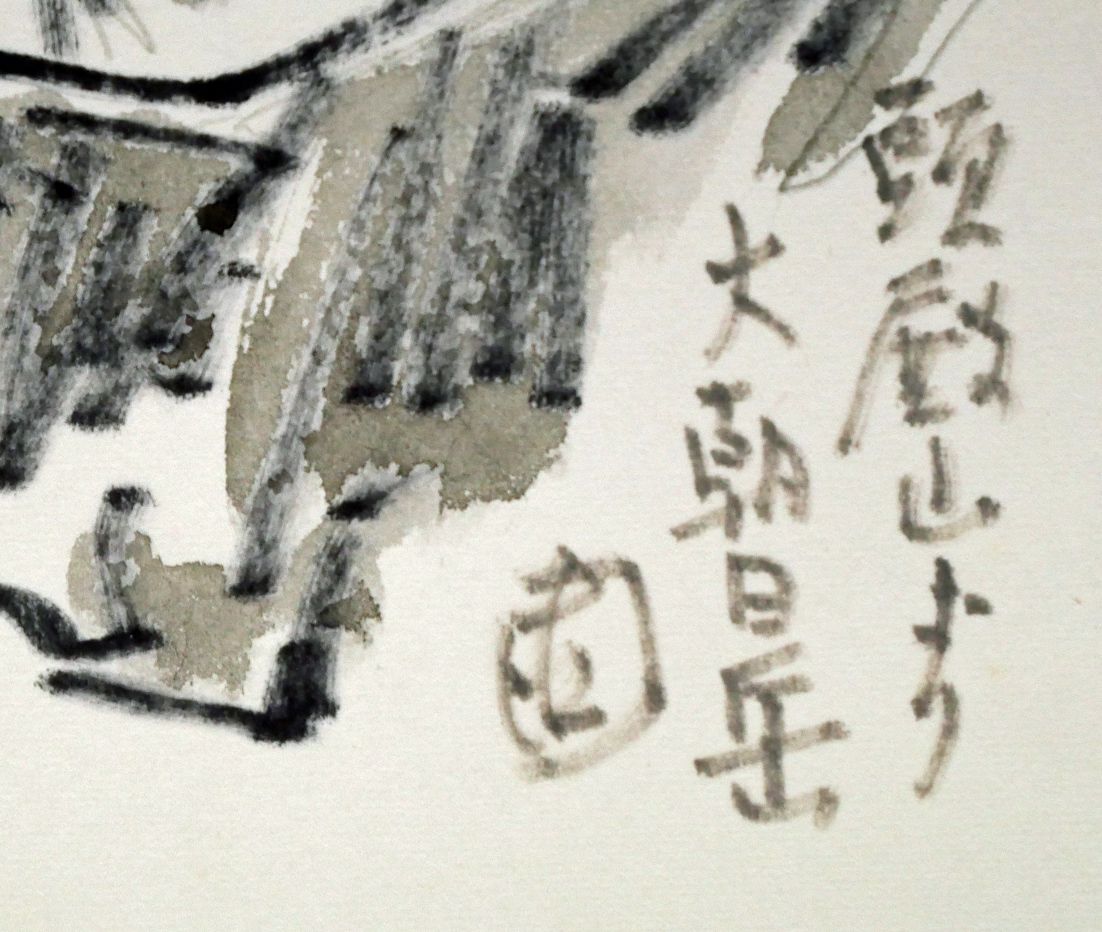 頭殿山より
大朝日岳